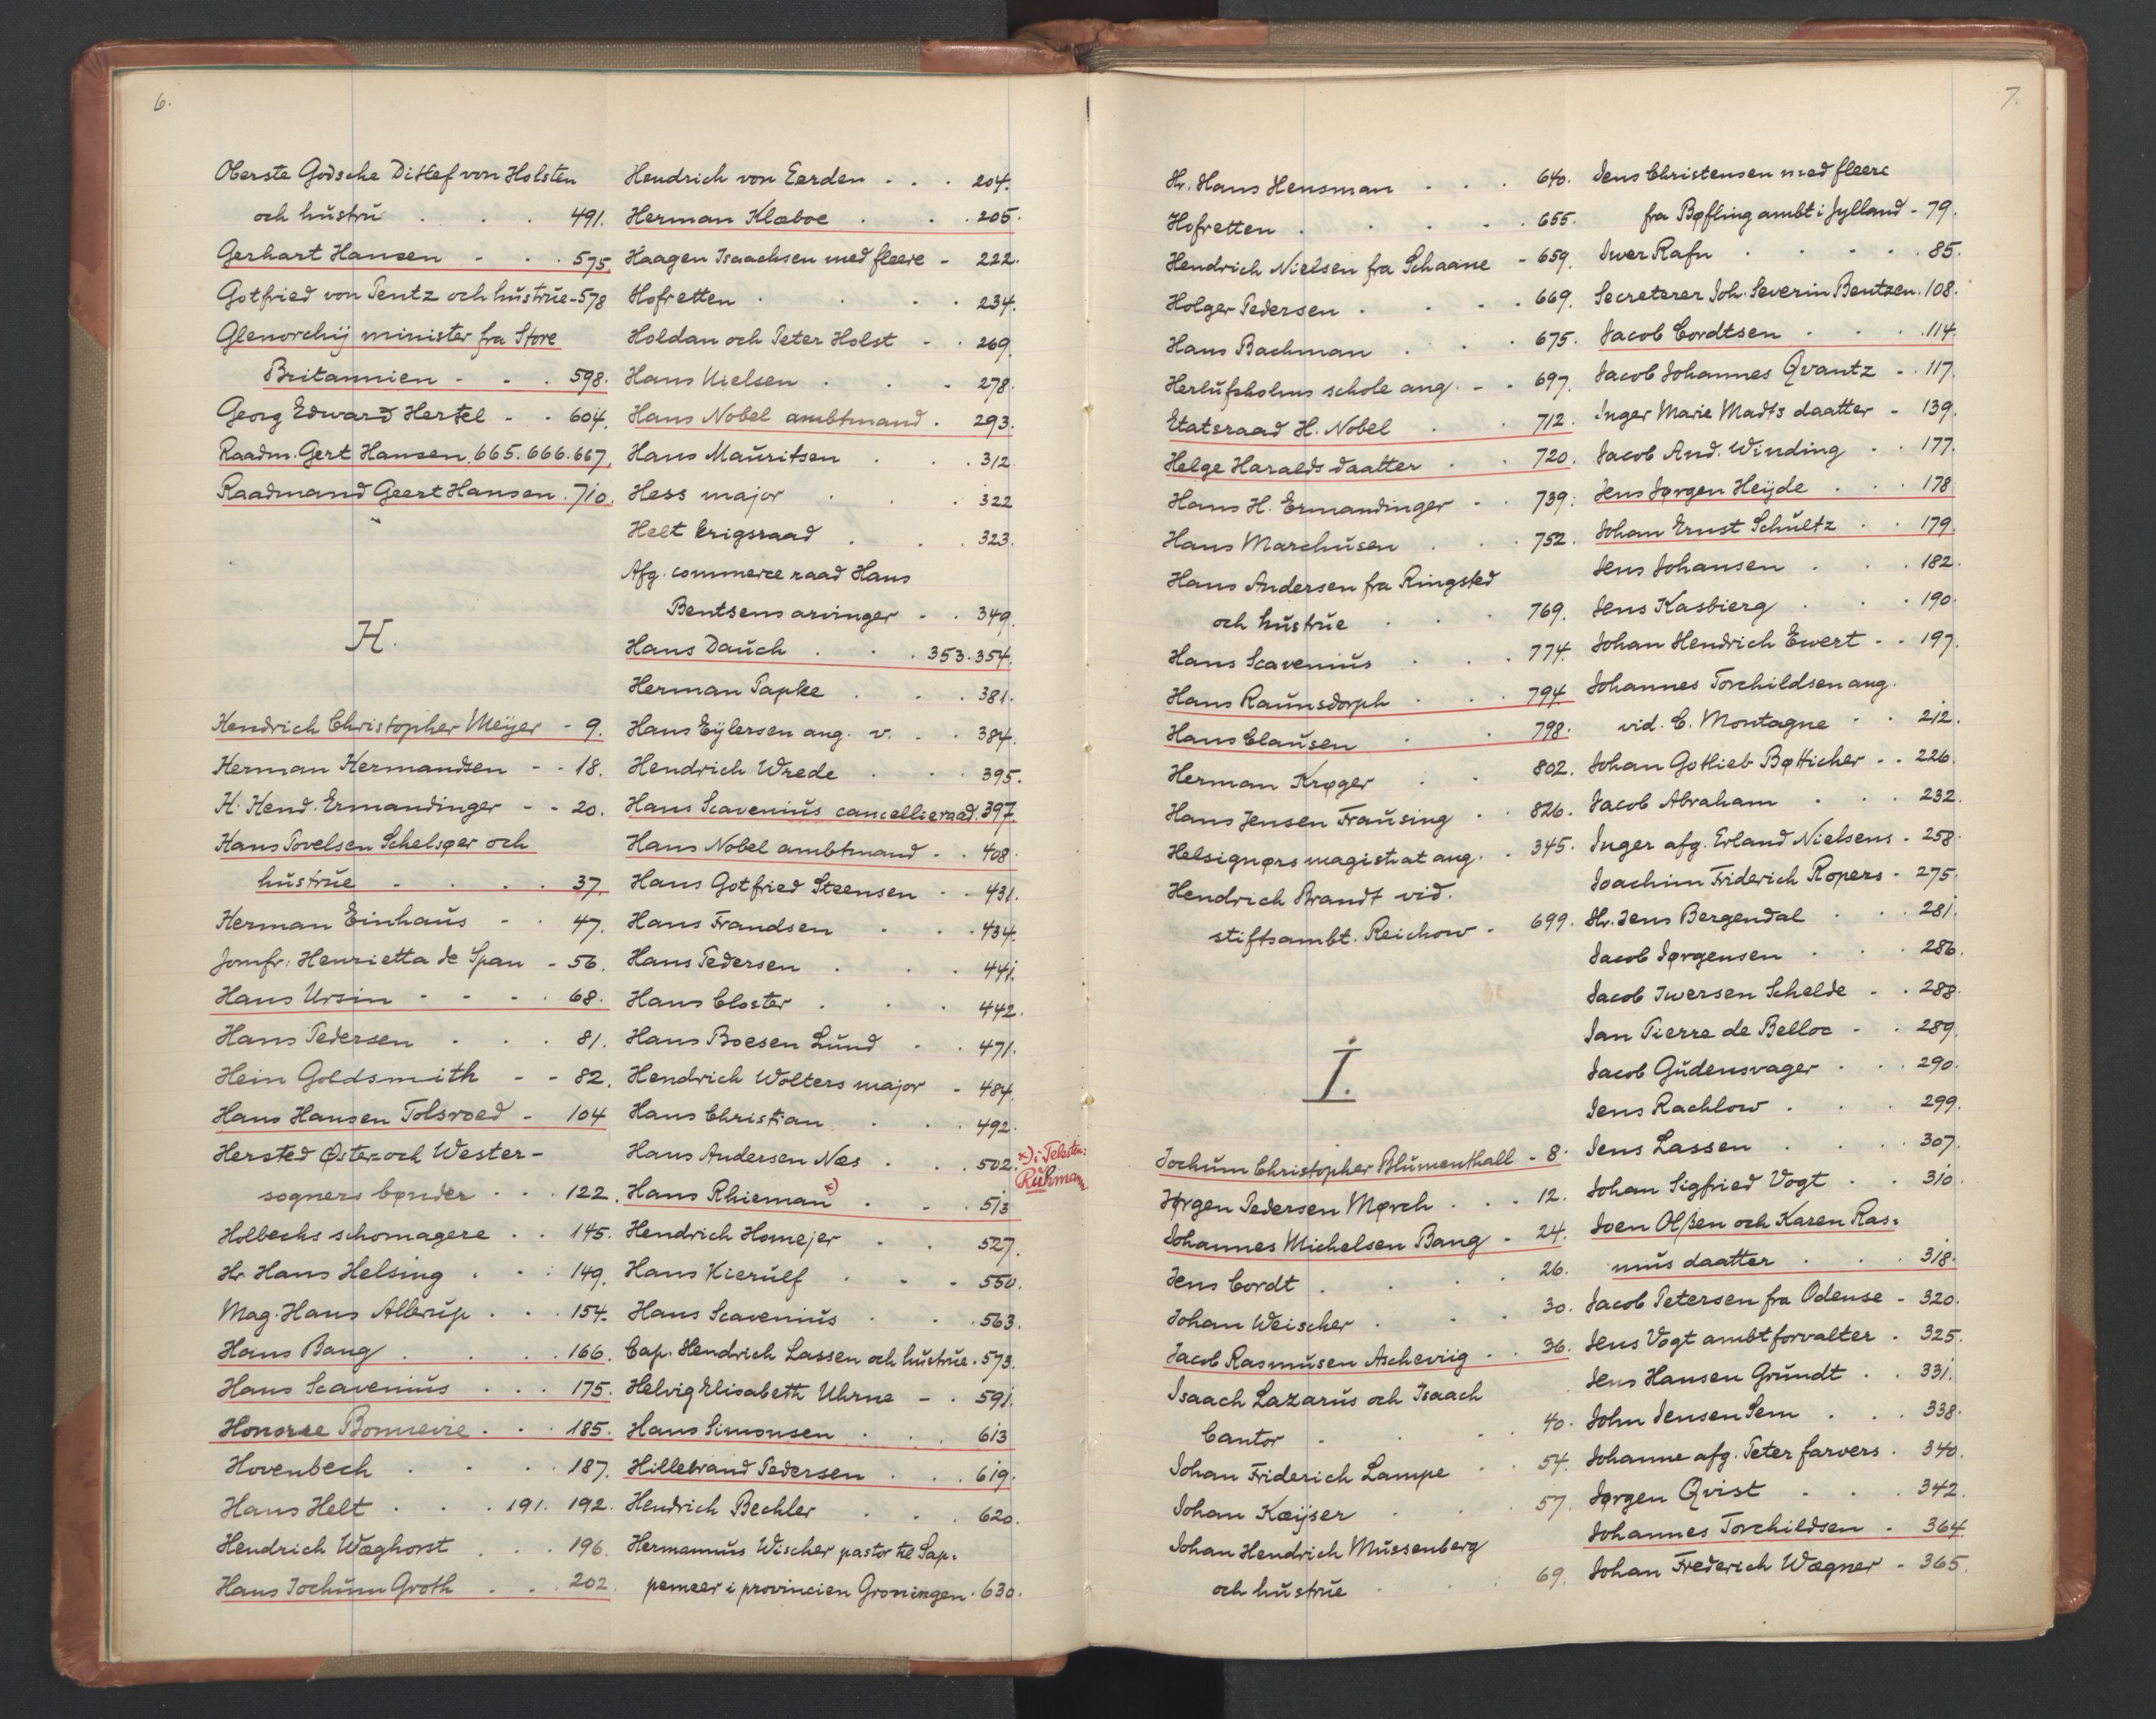 6.
Oberste Godsche Ditlef von Holsten
och hustru . . . 491.
Gerhart Hansen - . . 575.
Gotfried von Pentz och hustrue - 578
Glenorchij minister fra Store
Britannien - - . 598.
Georg Edward Hertel - . 604.
Raadm. Gert Hansen. 665. 666. 667.
Raadmand Geert Hansen. 710.
H.
Hendrich Christopher Meijer - 9.
Herman Hermandsen - . 18.
H. Hend. Ermandinger - - 20.
Hans Povelsen Schelsøer och
hustrue - . . . 37.
Herman Einhaus - . 47.
Jomfr: Henrietta de Span - 56.
Hans Ursin - - - . 68.
Hans Pedersen . . . 81.
Hein Goldsmith - - 82.
Hans Hansen Tolsroed - 104
Hersted Øster- och Wester-
sogners bønder . . . 122.
Holbechs schomagere . . 145.
Hr. Hans Helsing . . . 149.
Mag. Hans Allerup . . . 154.
Hans Bang . . . . 166.
Hans Scavenius . . . 175.
Honorae Bonnevie . . . 185.
Hovenbech . . . . 187.
Hans Helt . . . 191. 192.
Hendrich Wæghorst . . . 196.
Hans Jochum Groth . . . 202.
Hendrich von Eerden . . . 204.
Herman Klæboe . . . 205.
Haagen Isaachsen med fleere - 222.
Hofretten . . . . 234.
Holdan och Peter Holst - . 269.
Hans Nielsen . . . 278.
Hans Nobel ambtmand . 293.
Hans Mauritsen . . . 312
Hess major . . . 322
Helt krigsraad . . . 323.
Afg. commerce raad Hans
Bentsens arvinger - . 349.
Hans Dauch . . . 353. 354.
Herman Papke . . . 381.
Hans Eijlersen ang. v. . . 384.
Hendrich Wrede . . . 395.
Hans Scavenius cancellieraad. 397.
Hans Nobel ambtmand - . 408.
Hans Gotfried Steensen - . 431.
Hans Frandsen . . . 434.
Hans Pedersen . . . 441.
Hans Closter . . . 442.
Hans Boesen Lund - . 471.
Hendrich Wolters major - 484.
Hans Christian . . . 492.
Hans Andersen Næs . . . 502.
Hans Rhieman x) . . . 513
x) i Teksten:
Ruhmann
Hendrich Homejer . . 527.
Hans Kierulf . . - 550.
Hans Scavenius . . . 563.
Cap. Hendrich Lassen och hustrue . 573.
Helvig Elisabeth Uhrne - . 591.
Hans Simonsen . . . 613
Hillebrand Pedersen . . . 619.
Hendrich Bechler . . . 620.
Hermannus Wischer pastor til Sap-
pemeer i provincien Groningen . 630.
7.
Hr. Hans Hensman . . . 640.
Hofretten . . . . 655.
Hendrich Nielsen fra Schaane - 659.
Holger Pedersen . . . 669.
Hans Bachman . . . 675.
Herlufsholms schole ang. - . 697.
Etatsraad H. Nobel . . 712.
Helge Haralds daatter . . 720.
Hans H. Ermandinger - . 739.
Hans Marchusen . . . 752.
Hans Andersen fra Ringsted
och hustrue . . . 769.
Hans Scavenius . . . 774.
Hans Raunsdorph . . . 794.
Hans Clausen . . 798.
Herman Krøger . . 802.
Hans Jensen Frausing . . 826.
Helsignørs magistrat ang. . 345.
Hendrich Brandt vid.
stiftsambt. Reichow - 699.
I.
Jochum Christopher Blumenthall - 8.
Jørgen Pedersen Mørch . . . 12.
Johannes Michelsen Bang - 24.
Jens Cordt . . . . 26.
Johan Weischer . . . 30.
Jacob Rasmusen Ascheviig . . 36.
Isaach Lazarus och Isaach
Cantor . . . . 40.
Johan Friderich Lampe . . 54.
Johan Kæijser . . 57.
Johan Hendrich Mussenberg
och hustrue . . . 69.
Jens Christensen med fleere
fra Bøfling ambt i Jylland - 79.
Iwer Rafn . . . . 85.
Secreterer Joh. Severin Bentzen. 108.
Jacob Cordtsen . . . . 114.
Jacob Johannes Qvantz - . 117.
Inger Marie Madts daatter - 139.
Jacob And. Winding . . 177.
Jens Jørgen Heijde . . . 178
Johan Ernst Schultz . . 179.
Jens Johansen . . . 182.
Jens Kasbierg . . . 190.
Johan Hendrich Ewert - . 197.
Johannes Torchildsen ang.
vid. C. Montagne . . 212.
Johan Gotlieb Bøtticher . . 226.
Jacob Abraham . . . 232.
Inger afg. Erland Nielsens - 258.
Joachim Friderich Ropers - 275.
Hr. Jens Bergendal . . . 281.
Jacob Jørgensen . . . 286.
Jacob Iwersen Schelde - . 288.
Jan Pierre de Belloc - . 289.
Jacob Gudensvager . . . 290.
Jens Rachlow . . . 299.
Jens Lassen . . . . 307.
Johan Sigfried Vogt . . 310.
Joen Olßen och Karen Ras-
mus daatter . . . 318.
Jacob Petersen fra Odense - 320.
Jens Vogt ambtforvalter . 325.
Jens Hansen Grundt . . 331.
John Jensen Sem . . . 338.
Johanne afg. Peter farvers . 340.
Jørgen Qvist . . . 342.
Johannes Torchildsen . 364.
Johan Frederich Wægner - 365.